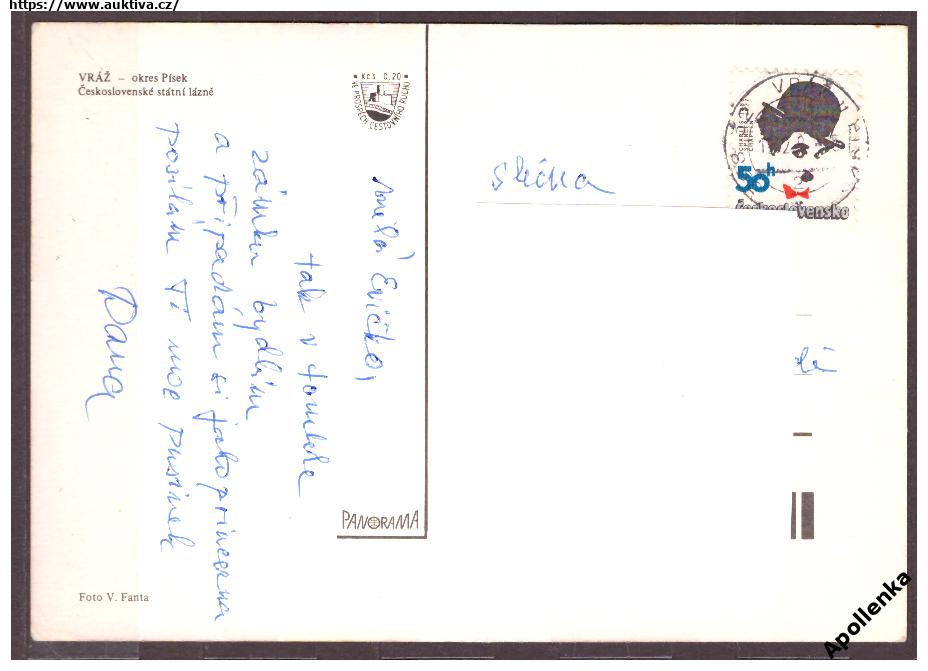 https://www.auktiva.cz/
VRÁŽ – okres Písek
Československé státní lázně
Kčs 0,20
VE PROSPĚCH CESTOVNÍHO RUCHU
Milá Evičko,
tak v tomhle
zámku bydlím
a připadám si jako princezna
posílám Ti moc pusinek
Dana
PANORAMA
Foto V. Fanta
slečna
CHARLES
SPENCER
CHAPLIN
50h
Československo
Apollenka